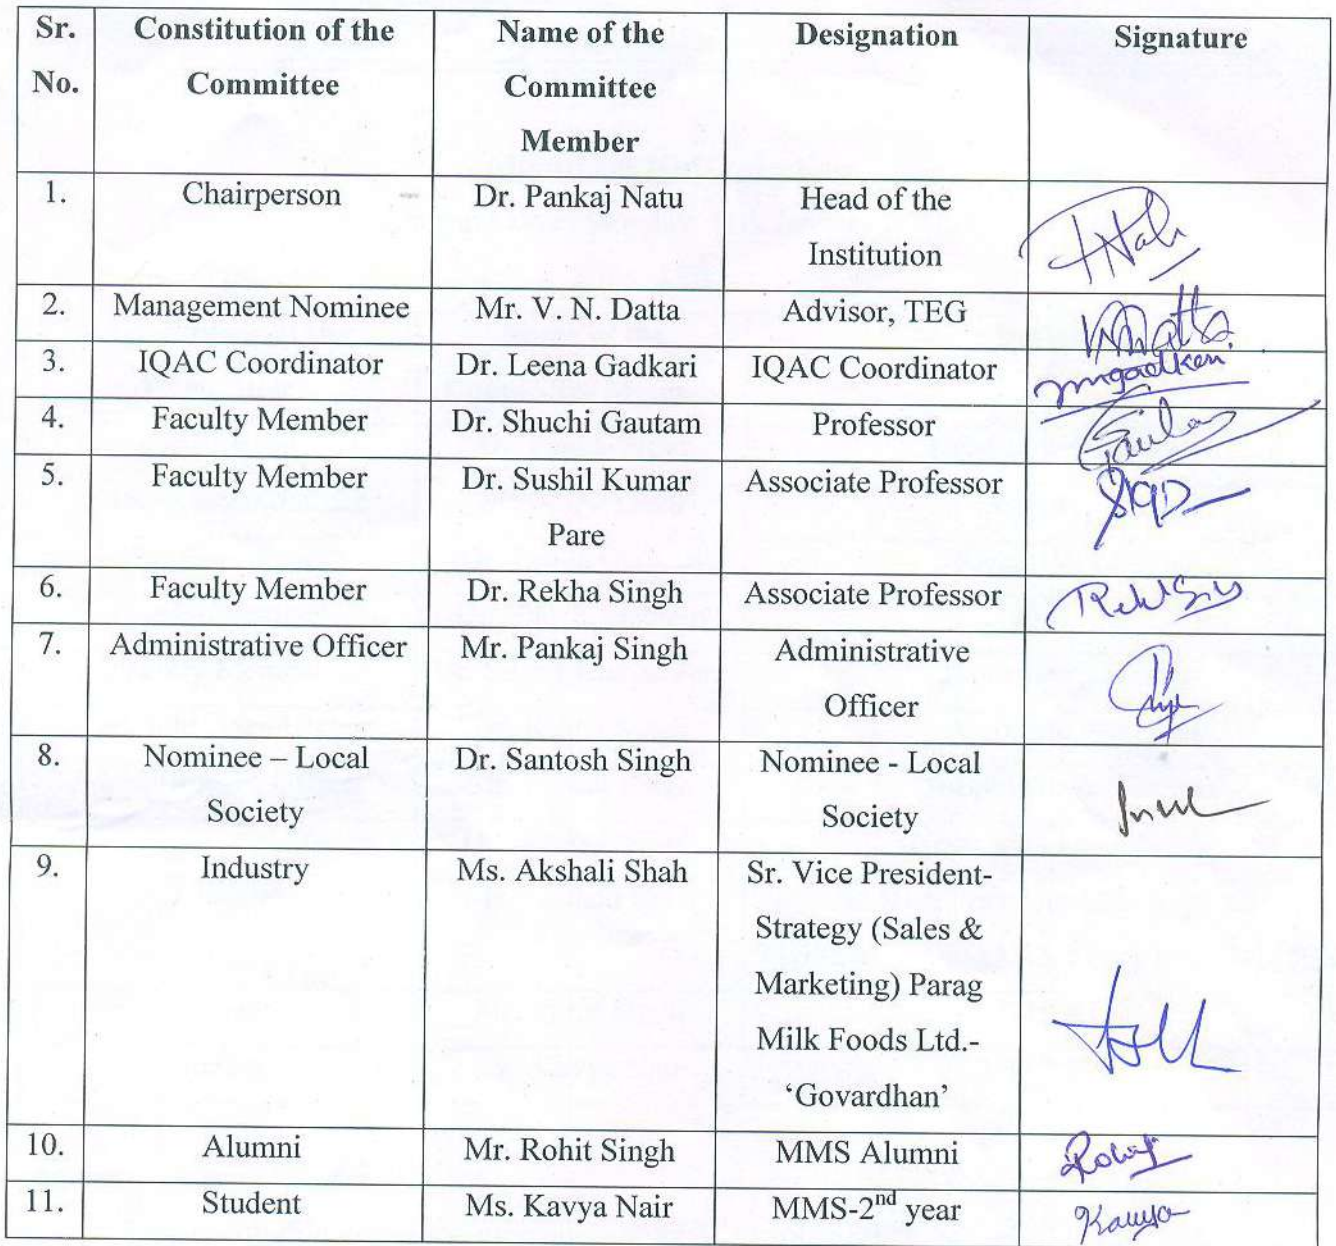 Sr. No. Constitution of the Committee Name of the Committee Member Designation Signature
1. Chairperson Dr. Pankaj Natu Head of the Institution
2. Management Nominee Mr. V. N. Datta Advisor, TEG
3. IQAC Coordinator Dr. Leena Gadkari IQAC Coordinator
4. Faculty Member Dr. Shuchi Gautam Professor
5. Faculty Member Dr. Sushil Kumar Pare Associate Professor
6. Faculty Member Dr. Rekha Singh Associate Professor
7. Administrative Officer Mr. Pankaj Singh Administrative Officer
8. Nominee – Local Society Dr. Santosh Singh Nominee - Local Society
9. Industry Ms. Akshali Shah Sr. Vice President- Strategy (Sales & Marketing) Parag Milk Foods Ltd.- ‘Govardhan’
10. Alumni Mr. Rohit Singh MMS Alumni
11. Student Ms. Kavya Nair MMS-2nd year Kavya